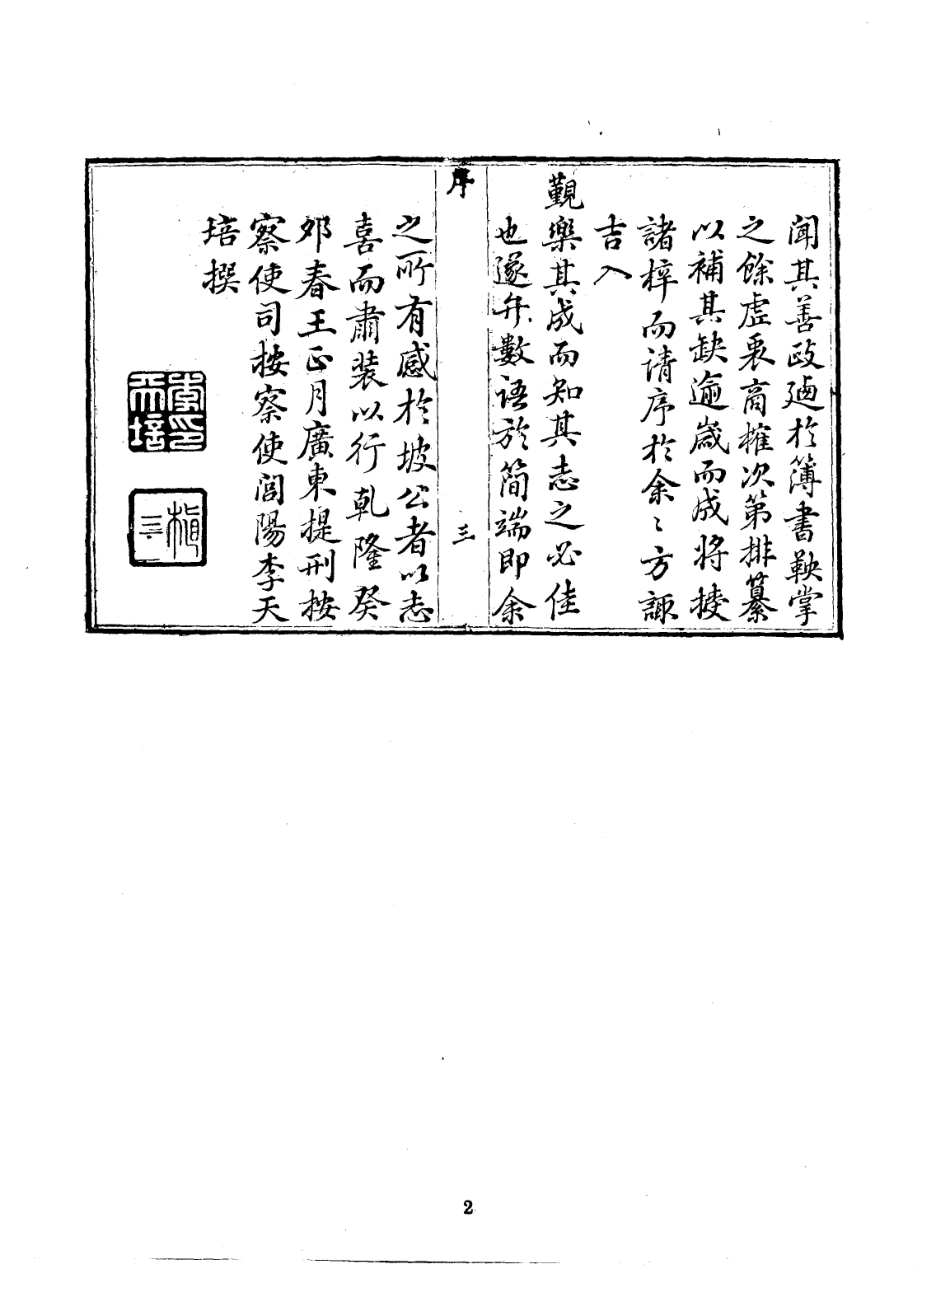 聞其善政廼於簿書鞅掌
之餘虛衷商榷次第排纂
以補其缺逾歲而成將授
諸梓而請序於余〻方諏
吉入
覲樂其成而知其志之必佳
也遂弁數語於簡端即余
序
三
之所有感於坡公者以志
喜而肅裝以行乾隆癸
卯春王正月廣東提刑按
察使司按察使閭陽李天
培撰
李印天培
楨三
2